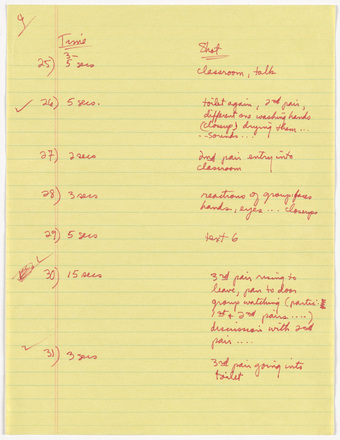 4
Time Shot
25) 5 secs classroom, talk
26) 5 secs. toilet again, 2nd pair,
different ones washing hands
(closeup) drying them...
..sounds...
27) 2 secs 2nd pair entry into
classroom
28) 3 secs reactions of group: faces
hands, eyes... closeups
29) 5 secs text 6
30) 15 secs 3rd pair rising to
leave, pan to door
group watching (partic.
1st + 2nd pairs....)
discussion with 2nd
pair....
31) 3 secs 3rd pair going into
toilet